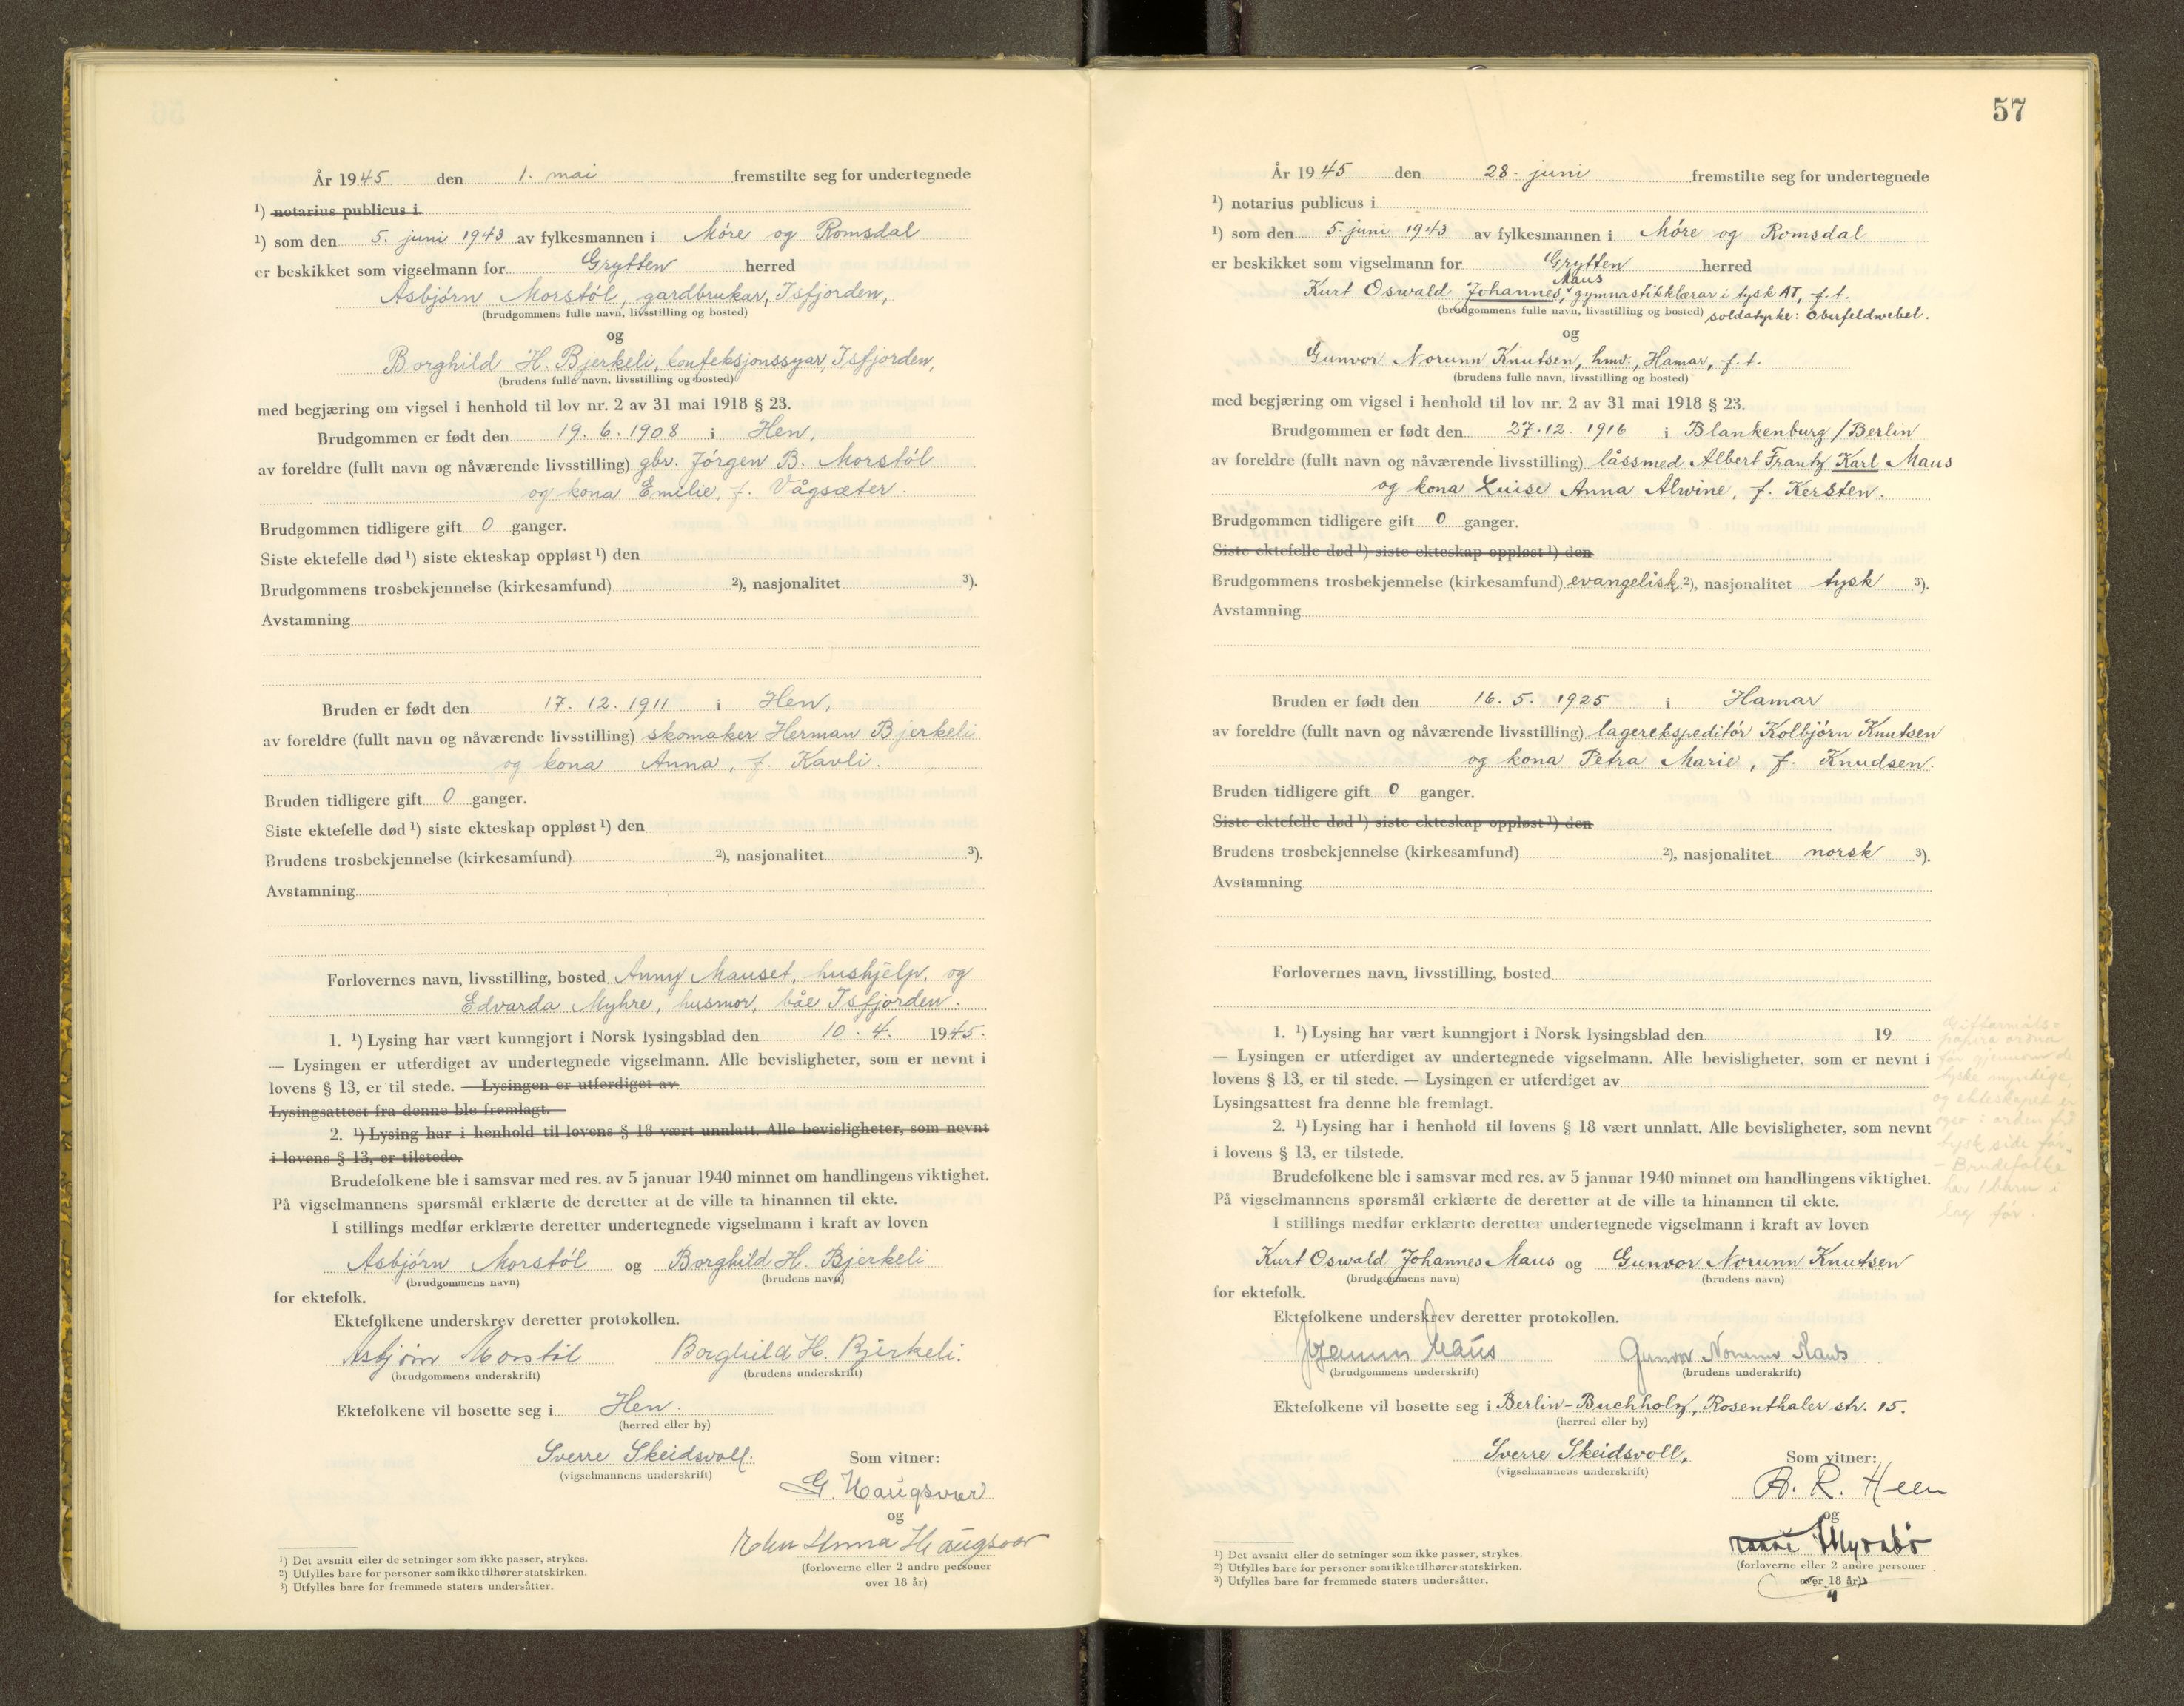 År 1945 den 1. mai fremstilte seg for undertegnede
¹) notarius publicus i
¹) som den 5. juni 1943 av fylkesmannen i Møre og Romsdal
er beskikket som vigselmann for Grytten herred
Asbjørn Morstøl, gardbrukar, Isfjorden,
(brudgommens fulle navn, livsstilling og bosted)
og
Borghild H. Bjerkeli, konfeksjonssyar, Isfjorden,
(brudens fulle navn, livsstilling og bosted)
med begjæring om vigsel i henhold til lov nr. 2 av 31 mai 1918 § 23.
Brudgommen er født den 19. 6. 1908 i Hen,
av foreldre (fullt navn og nåværende livsstilling) gbr. Jørgen B. Morstøl
og kona Emilie, f. Vågsæter.
Brudgommen tidligere gift 0 ganger.
Siste ektefelle død ¹) siste ekteskap oppløst ¹) den
Brudgommens trosbekjennelse (kirkesamfund) ²), nasjonalitet ³).
Avstamning
Bruden er født den 17. 12. 1911 i Hen,
av foreldre (fullt navn og nåværende livsstilling) skomaker Herman Bjerkeli
og kona Anna, f. Kavli.
Bruden tidligere gift 0 ganger.
Siste ektefelle død ¹) siste ekteskap oppløst ¹) den
Brudens trosbekjennelse (kirkesamfund) ²), nasjonalitet ³).
Avstamning
Forlovernes navn, livsstilling, bosted Anny Mauset, hushjelp, og
Edvarda Myhre, husmor, båe Isfjorden.
1. ¹) Lysing har vært kunngjort i Norsk lysingsblad den 10. 4. 1945.
— Lysingen er utferdiget av undertegnede vigselmann. Alle bevisligheter, som er nevnt i
lovens § 13, er til stede. — Lysingen er utferdiget av
Lysingsattest fra denne ble fremlagt. —
2. ¹) Lysing har i henhold til lovens § 18 vært unnlatt. Alle bevisligheter, som nevnt
i lovens § 13, er tilstede.
Brudefolkene ble i samsvar med res. av 5 januar 1940 minnet om handlingens viktighet.
På vigselmannens spørsmål erklærte de deretter at de ville ta hinannen til ekte.
I stillings medfør erklærte deretter undertegnede vigselmann i kraft av loven
Asbjørn Morstøl og Borghild H. Bjerkeli
(brudgommens navn) (brudens navn)
for ektefolk.
Ektefolkene underskrev deretter protokollen.
Asbjørn Morstøl Borghild H. Bjerkeli.
(brudgommens underskrift) (brudens underskrift)
Ektefolkene vil bosette seg i Hen.
(herred eller by)
Sverre Skeidsvoll. Som vitner:
(vigselmannens underskrift)
G. Haugsvær
og
Anna Haugsvær
(forloverne eller 2 andre personer
over 18 år)
¹) Det avsnitt eller de setninger som ikke passer, strykes.
²) Utfylles bare for personer som ikke tilhører statskirken.
³) Utfylles bare for fremmede staters undersåtter.
57
År 1945 den 28. juni fremstilte seg for undertegnede
¹) notarius publicus i
¹) som den 5. juni 1943 av fylkesmannen i Møre og Romsdal
er beskikket som vigselmann for Grytten herred
Maus
Kurt Oswald Johannes, gymnastikklærar i tysk AT, f.t.
(brudgommens fulle navn, livsstilling og bosted) soldatyrke: Oberfeldwebel.
og
Gunvor Norunn Knutsen, hmv., Hamar, f.t.
(brudens fulle navn, livsstilling og bosted)
med begjæring om vigsel i henhold til lov nr. 2 av 31 mai 1918 § 23.
Brudgommen er født den 27. 12. 1916 i Blankenburg/Berlin
av foreldre (fullt navn og nåværende livsstilling) låssmed Albert Frantz Karl Maus
og kona Luise Anna Alwine, f. Kersten.
Brudgommen tidligere gift 0 ganger.
Siste ektefelle død ¹) siste ekteskap oppløst ¹) den
Brudgommens trosbekjennelse (kirkesamfund) evangelisk ²), nasjonalitet tysk ³).
Avstamning
Bruden er født den 16. 5. 1925 i Hamar
av foreldre (fullt navn og nåværende livsstilling) lagerekspeditør Kolbjørn Knutsen
og kona Petra Marie, f. Knudsen.
Bruden tidligere gift 0 ganger.
Siste ektefelle død ¹) siste ekteskap oppløst ¹) den
Brudens trosbekjennelse (kirkesamfund) ²), nasjonalitet norsk ³).
Avstamning
Forlovernes navn, livsstilling, bosted
1. ¹) Lysing har vært kunngjort i Norsk lysingsblad den 19
— Lysingen er utferdiget av undertegnede vigselmann. Alle bevisligheter, som er nevnt i
lovens § 13, er til stede. — Lysingen er utferdiget av
Lysingsattest fra denne ble fremlagt.
2. ¹) Lysing har i henhold til lovens § 18 vært unnlatt. Alle bevisligheter, som nevnt
i lovens § 13, er tilstede.
Brudefolkene ble i samsvar med res. av 5 januar 1940 minnet om handlingens viktighet.
På vigselmannens spørsmål erklærte de deretter at de ville ta hinannen til ekte.
I stillings medfør erklærte deretter undertegnede vigselmann i kraft av loven
Giftarmåls-
papira ordna
før gjennom de
tyske myndige,
og ekteskapet er
også i orden frå
tysk side før.
- Brudefolke
har 1 barn i
lag før.
Kurt Oswald Johannes Maus og Gunvor Norunn Knutsen
(brudgommens navn) (brudens navn)
for ektefolk.
Ektefolkene underskrev deretter protokollen.
Maus Gunvor Norunn Maus
(brudgommens underskrift) (brudens underskrift)
Ektefolkene vil bosette seg i Berlin-Buchholz, Rosenthaler str. 15.
(herred eller by)
Sverre Skeidsvoll. Som vitner:
(vigselmannens underskrift)
R. Heen
og
Myrabø
(forloverne eller 2 andre personer
over 18 år)
¹) Det avsnitt eller de setninger som ikke passer, strykes.
²) Utfylles bare for personer som ikke tilhører statskirken.
³) Utfylles bare for fremmede staters undersåtter.